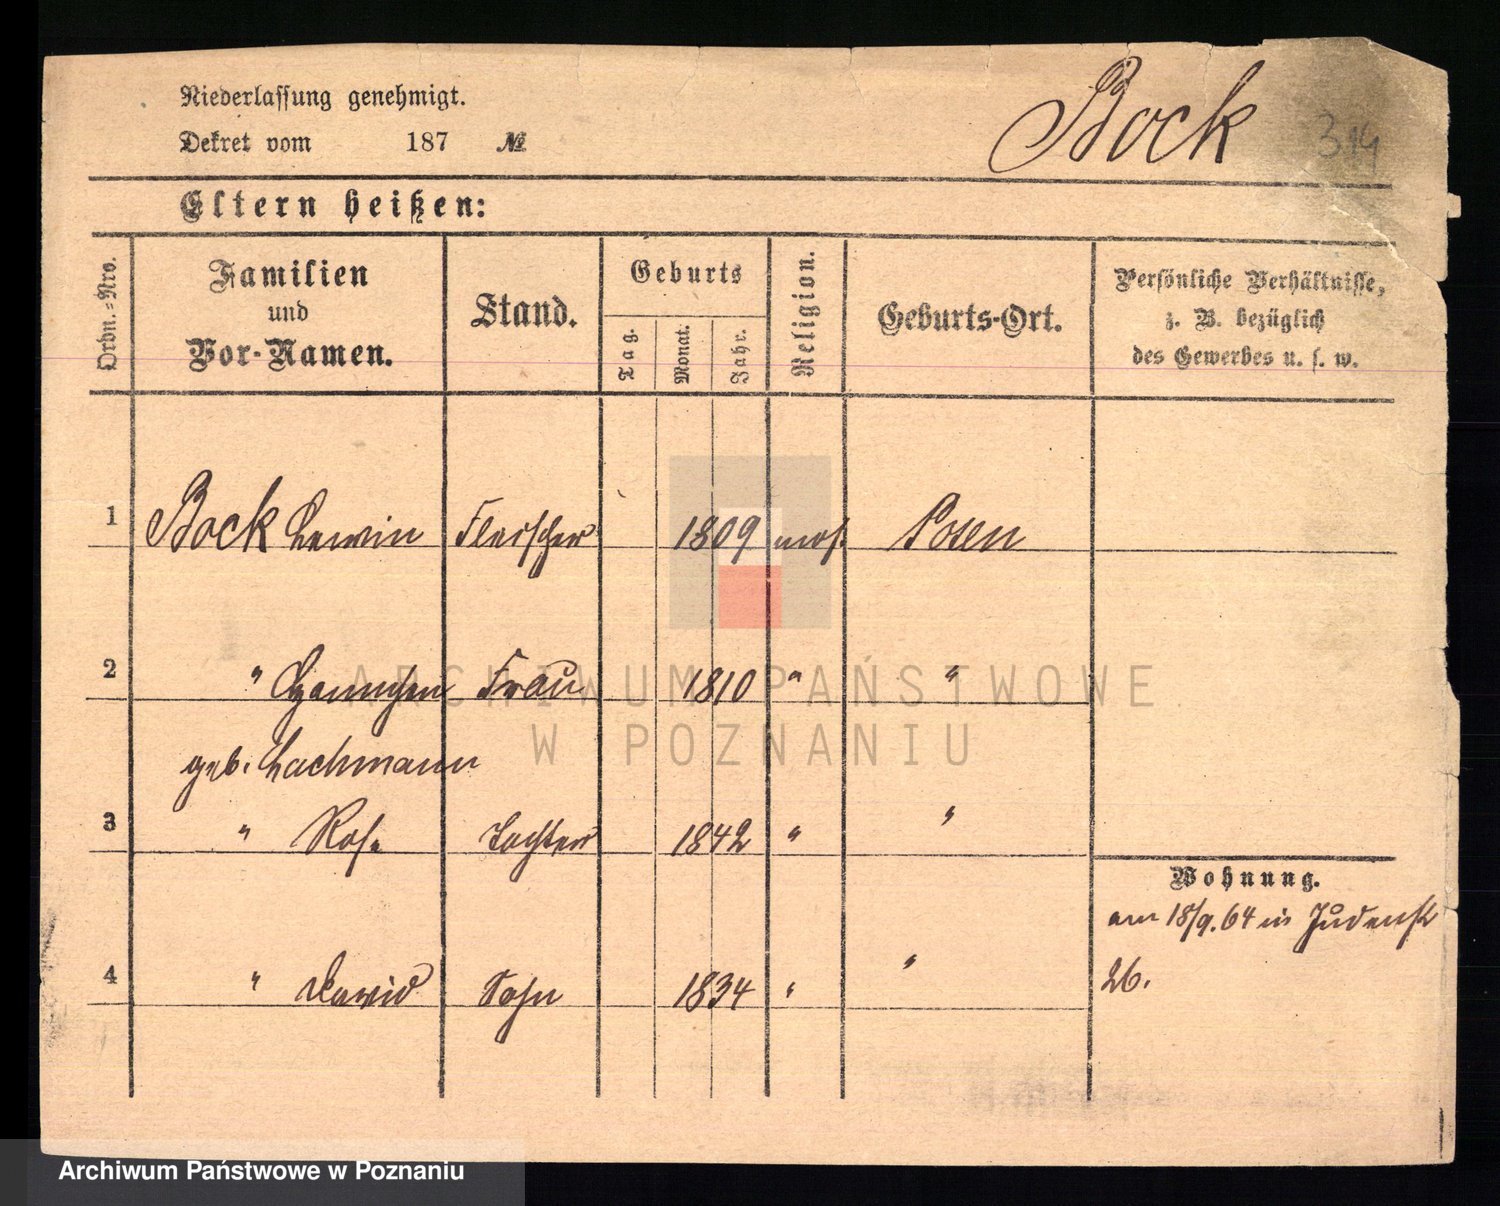 Niederlassung genehmigt.
Bock
314
Dekret vom 187 №
Eltern heißen:
Ordn.-Nro.
Familien
und
Vor-Namen.
Stand.
Geburts
Tag.
Monat.
Jahr.
Religion.
Geburts-Ort.
Persönliche Verhältnisse,
z. B. bezüglich
des Gewerbes u. s. w.
1 Bock Lewin Fleischer 1809 mos. Posen
2 " Frau 1810 " "
geb. Lachmann
3 " Rosa Tochter 1842 " "
Wohnung.
am 18/9. 64 in Judenst
26.
4 " Dawid Sohn 1834 " "
ARCHIWUM PAŃSTWOWE
W POZNANIU
Archiwum Państwowe w Poznaniu